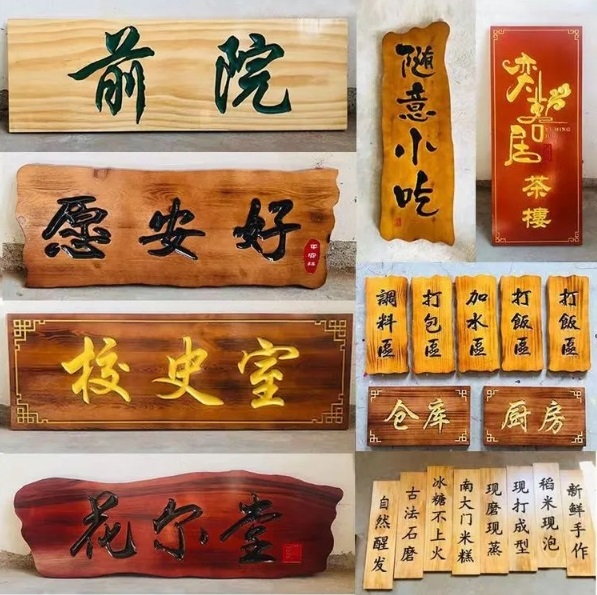 前院
愿安好
校史室
花尔堂
随意小吃
居
茶樓
調料區
打包區
加水區
打飯區
打飯區
仓库
厨房
自然醒发
古法石磨
冰糖不上火
南大门米糕
现磨现蒸
现打成型
稻米现泡
新鲜手作